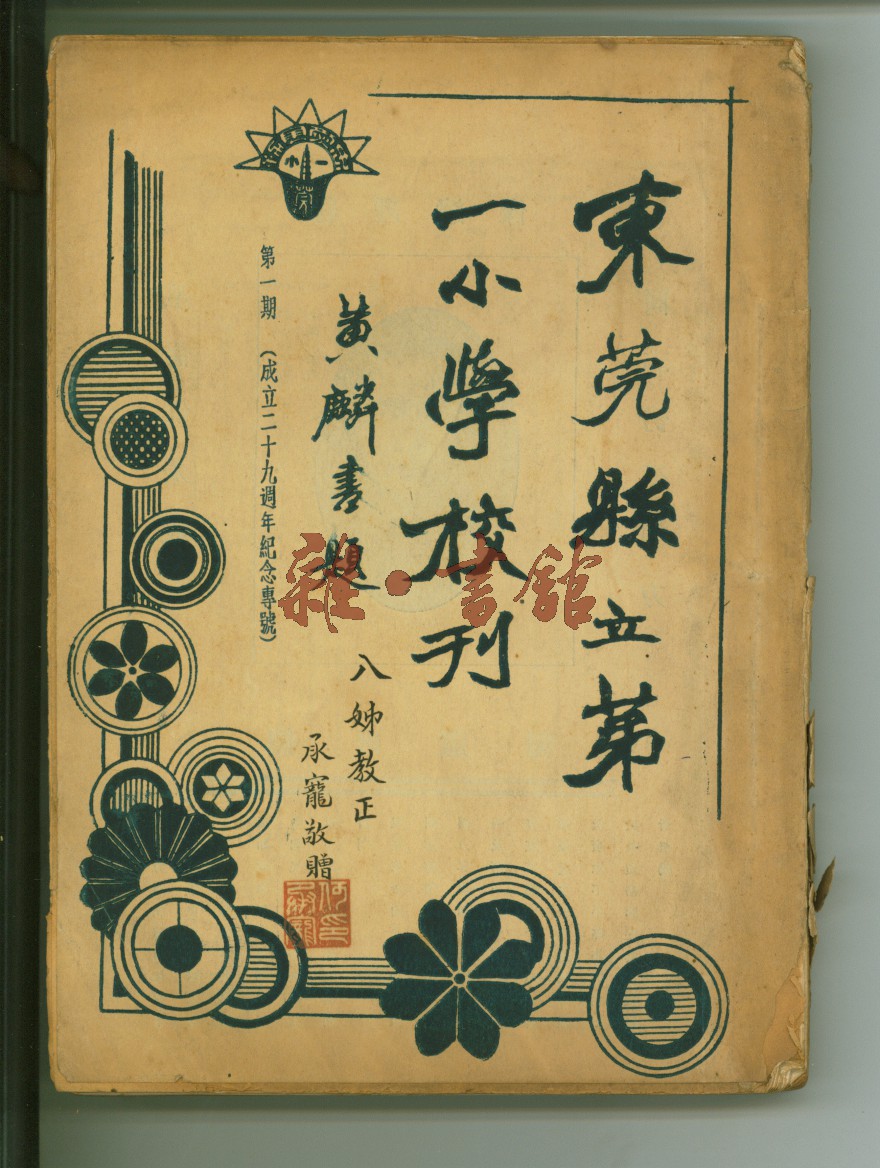 東莞縣立第
一小學校刊
黃麟書題
第一期 (成立二十九週年紀念專號)
八姊教正
承寵敬贈
何承寵印
雜·書館
一小
莞